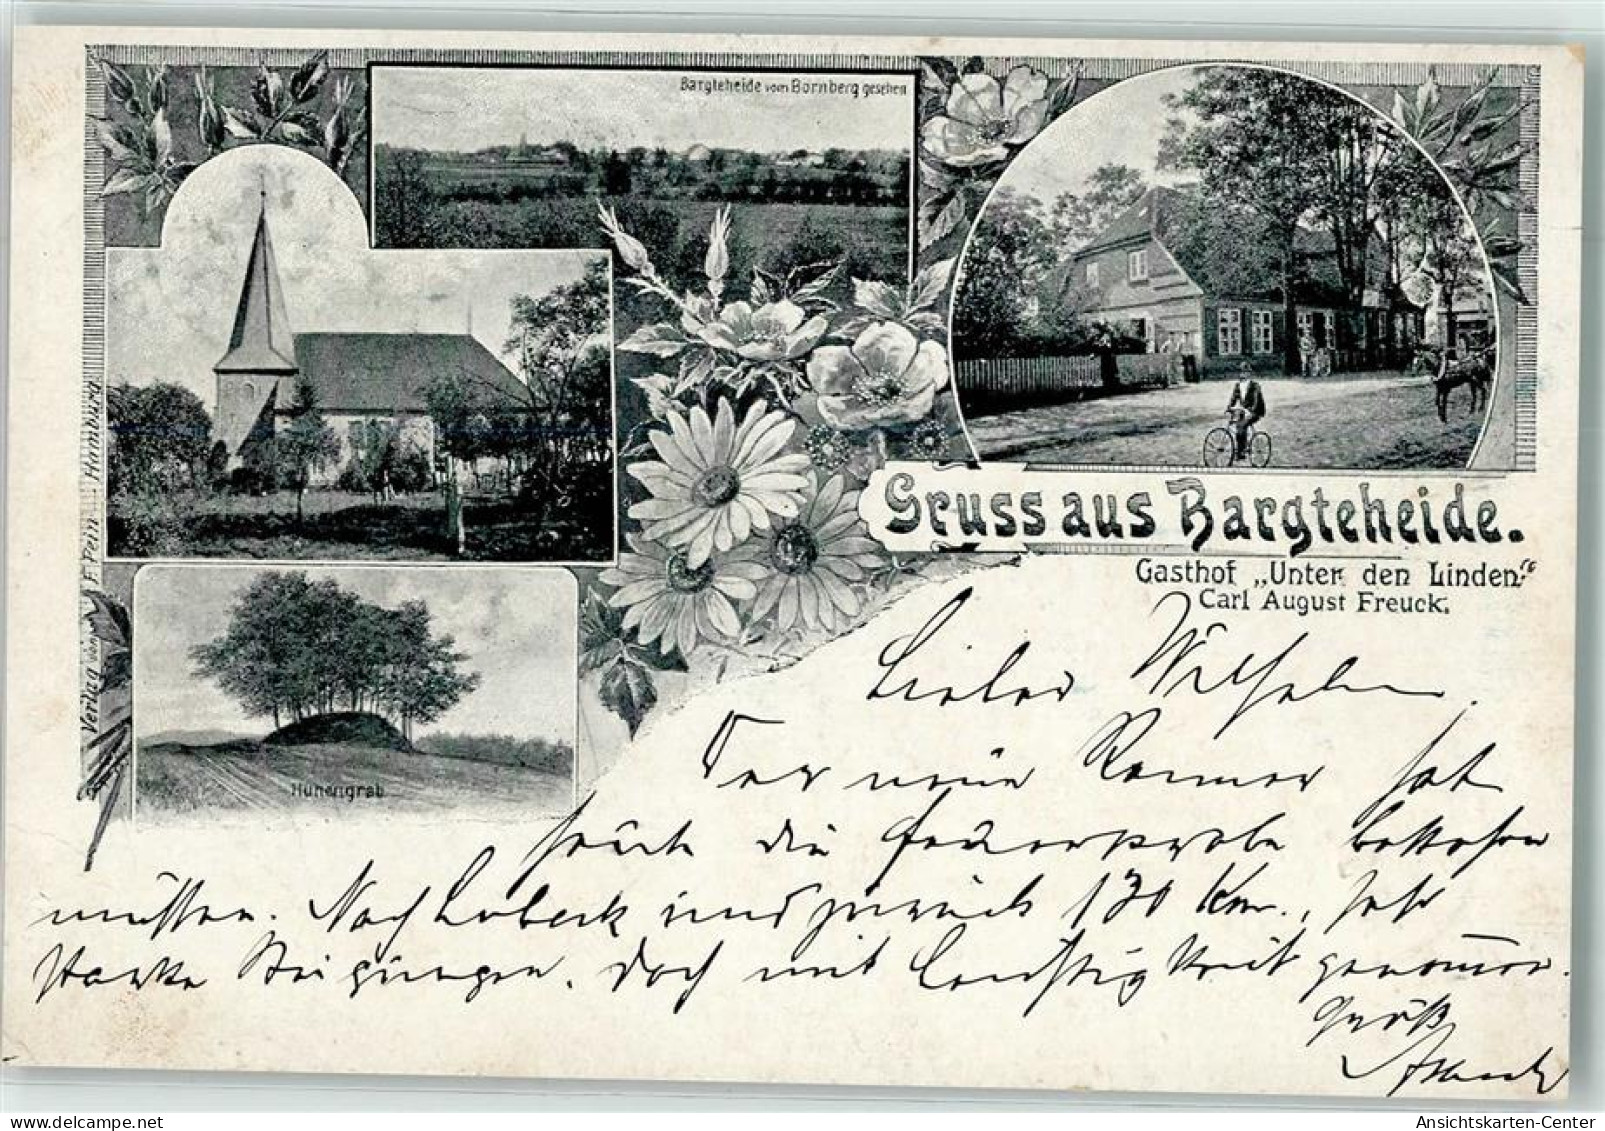 Bargteheide vom Bornberg gesehen
Gruss aus Bargteheide.
Gasthof „Unter den Linden“
Carl August Freuck.
Hünengrab
Verlag von F. Pein Hamburg
Lieber Wilhelm.
Der neue Renner hat
heute die Feuerprobe bestehen
müssen. Nach Lübeck und zurück 130 Km., sehr
starke Steigungen. doch mit Leichtigkeit genommen.
Gruß
AnsichtsKarten-Center